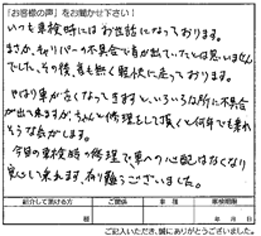 「お客様の声」をお聞かせ下さい!
いつも車検時にはお世話になっております。
まさか、キャリパーの不具合で音が出ていたとは思いません
でした、その後、音も無く軽快に走っております。
やはり車が古くなってきますと、いろいろな所に不具合
が出て来ますが、ちゃんと修理をして頂くと何年でも乗れ
そうな気がします。
今回の車検時の修理で、車への心配はなくなり
安心して乗れます、有り難うございました。
紹介して頂ける方 ご関係 車種 車検期限
様 年 月 日
ご記入いただき、誠にありがとうございました。